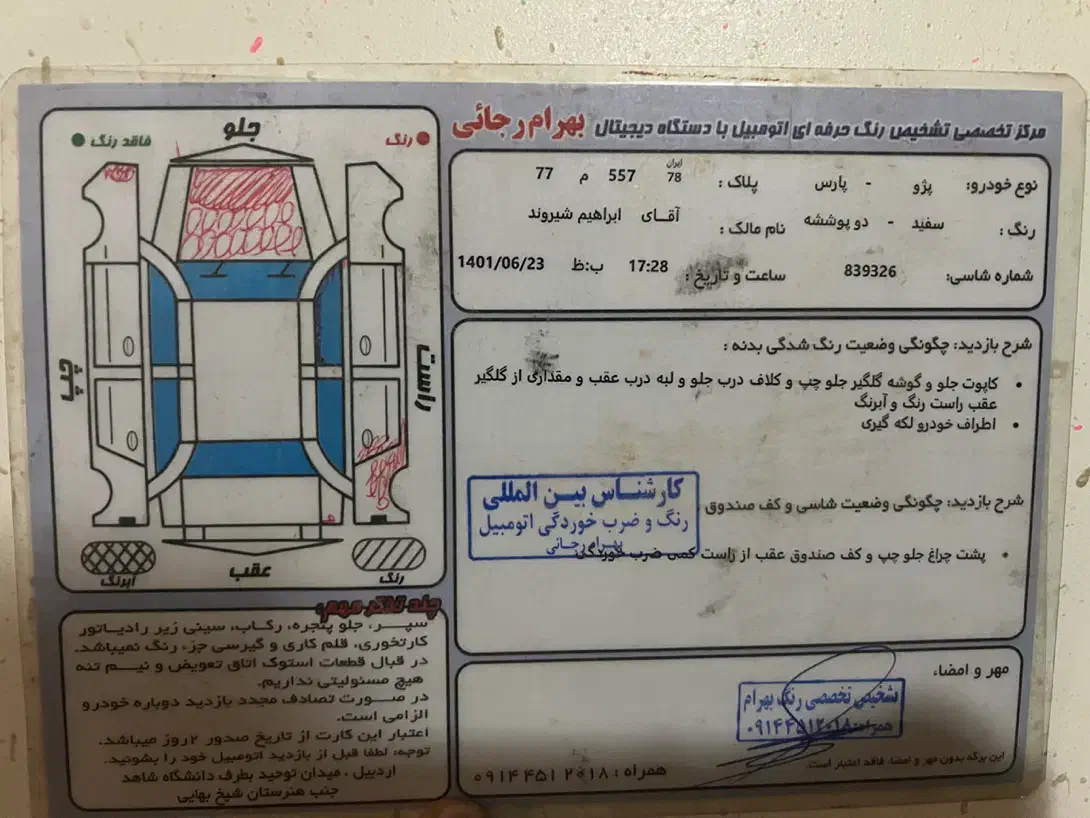 مرکز تخصصی تشخیص رنگ حرفه ای اتومبیل با دستگاه دیجیتال بهرام رجائی
نوع خودرو: پژو - پارس
پلاک: ایران 78 557 م 77
رنگ: سفید - دو پوششه
نام مالک: آقـای ابراهیم شیروند
شماره شاسی: 839326
ساعت و تاریخ: 17:28 ب:ظ 1401/06/23
شرح بازدید: چگونگی وضعیت رنگ شدگی بدنه:
• کاپوت جلو و گوشه گلگیر جلو چپ و کلاف درب جلو و لبه درب عقب و مقداری از گلگیر
عقب راست رنگ و آبرنگ
• اطراف خودرو لکه گیری
شرح بازدید: چگونگی وضعیت شاسی و کف صندوق
• پشت چراغ جلو چپ و کف صندوق عقب از راست کمی ضرب خوردگی
کارشناس بین المللی
رنگ و ضرب خوردگی اتومبیل
بهرام رجائی
مهر و امضاء
تشخیص تخصصی رنگ بهرام
همراه: ۰۹۱۴۴۵۱۲۰۱۸
این برگه بدون مهر و امضاء فاقد اعتبار است.
همراه: ۰۹۱۴ ۴۵۱ ۲۰۱۸
رنگ
فاقد رنگ
جلو
راست
چپ
عقب
رنگ
آبرنگ
چند تذکر مهم:
سپـر، جلو پنجره، رکاب، سینی زیر رادیـاتور
کارتخوری، قلم کاری و گیرسی جزء رنگ نمیباشد.
در قبال قطعات استوک اتاق تعویض و نیـم تنه
هیچ مسئولیتی نداریم.
در صـورت تصادف مجدد بازدید دوباره خودرو
الزامی است.
اعتبار این کارت از تاریخ صدور ۲ روز میباشد.
توجه: لطفا قبل از بازدید اتومبیل خود را بشوئید.
اردبیل، میدان توحید بطرف دانشگاه شاهد
جنب هنرستان شیخ بهایی